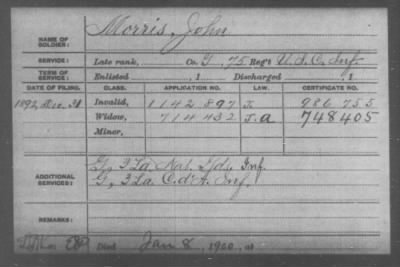 NAME OF SOLDIER: Morris, John
SERVICE: Late rank, Co. G, 75 Reg't U.S.C. Inf.
TERM OF SERVICE: Enlisted , 1 Discharged , 1
DATE OF FILING. CLASS. APPLICATION NO. LAW. CERTIFICATE NO.
1892, Dec. 31 Invalid, 1142897 J. 986755
Widow, 714432 J.a 748405
Minor,
ADDITIONAL SERVICES: G, 3 La. Nat. Gds. Inf.
G, 3 La. C. d'A. Inf.
REMARKS:
Died Jan 8, 1900, at